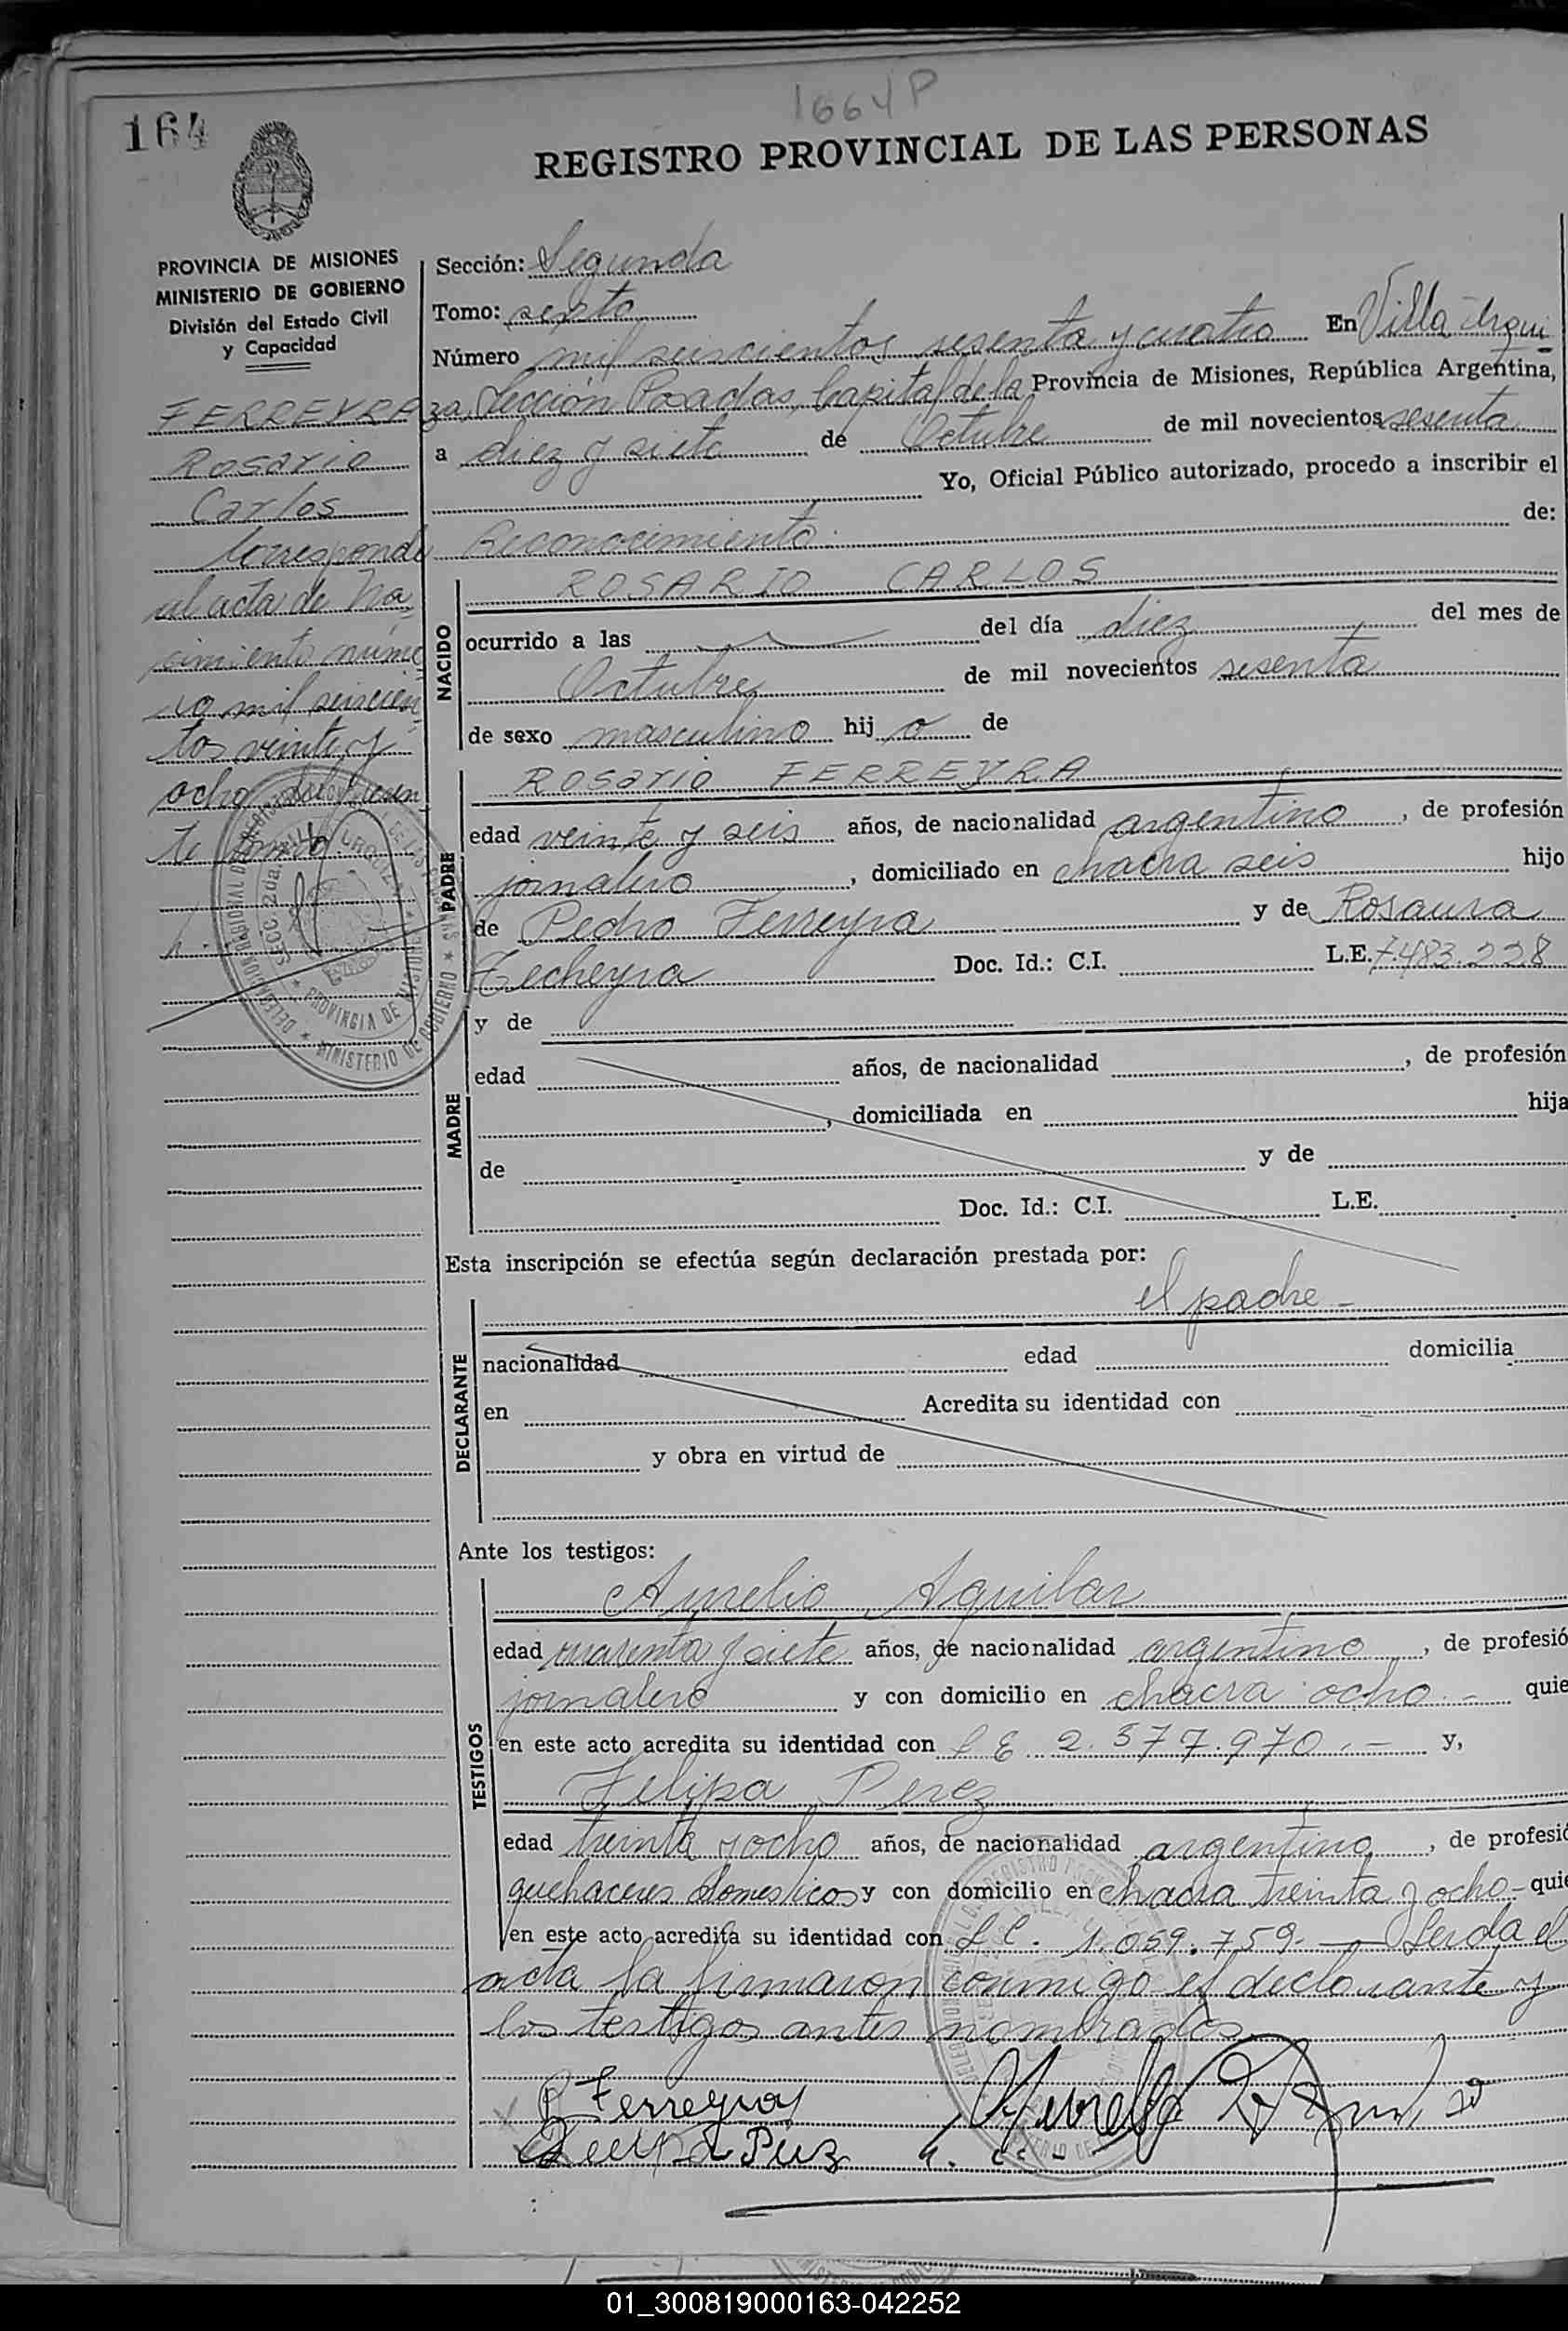 1664 P
164
REGISTRO PROVINCIAL DE LAS PERSONAS
PROVINCIA DE MISIONES
MINISTERIO DE GOBIERNO
División del Estado Civil
y Capacidad
FERREYRA
Rosario
Carlos
Corresponde
al acta de Na-
cimiento núme
ro mil seiscien
tos veinte y
ocho del presen
te tomo
Sección: Segunda
Tomo: sexto
Número mil seiscientos sesenta y cuatro En Villa Urqui
za, Sección Posadas, Capital de la Provincia de Misiones, República Argentina,
a diez y siete de Octubre de mil novecientos sesenta
Yo, Oficial Público autorizado, procedo a inscribir el
Reconocimiento de:
NACIDO
ROSARIO CARLOS
ocurrido a las del día diez del mes de
Octubre de mil novecientos sesenta
de sexo masculino hij o de
PADRE
Rosario FERREYRA
edad veinte y seis años, de nacionalidad argentino, de profesión
jornalero, domiciliado en chacra seis hijo
de Pedro Ferreyra y de Rosaura
Techeyra Doc. Id.: C.I. L.E. 7.483.228
MADRE
y de
edad años, de nacionalidad , de profesión
, domiciliada en hija
de y de
Doc. Id.: C.I. L.E.
Esta inscripción se efectúa según declaración prestada por:
DECLARANTE
el padre -
nacionalidad edad domicilia
en Acredita su identidad con
y obra en virtud de
Ante los testigos:
TESTIGOS
Aurelio Aguilar
edad cuarenta y siete años, de nacionalidad argentino, de profesió
jornalero y con domicilio en chacra ocho.- quie
en este acto acredita su identidad con L E 2.377.970.- y,
Felipa Perez
edad treinta y ocho años, de nacionalidad argentina, de profesió
quehaceres domesticos y con domicilio en chacra treinta y ocho- quie
en este acto acredita su identidad con L C. 1.059.759.- Leida el
acta la firmaron conmigo el declarante y
los testigos antes nombrados.
R Ferreyra
01_300819000163-042252